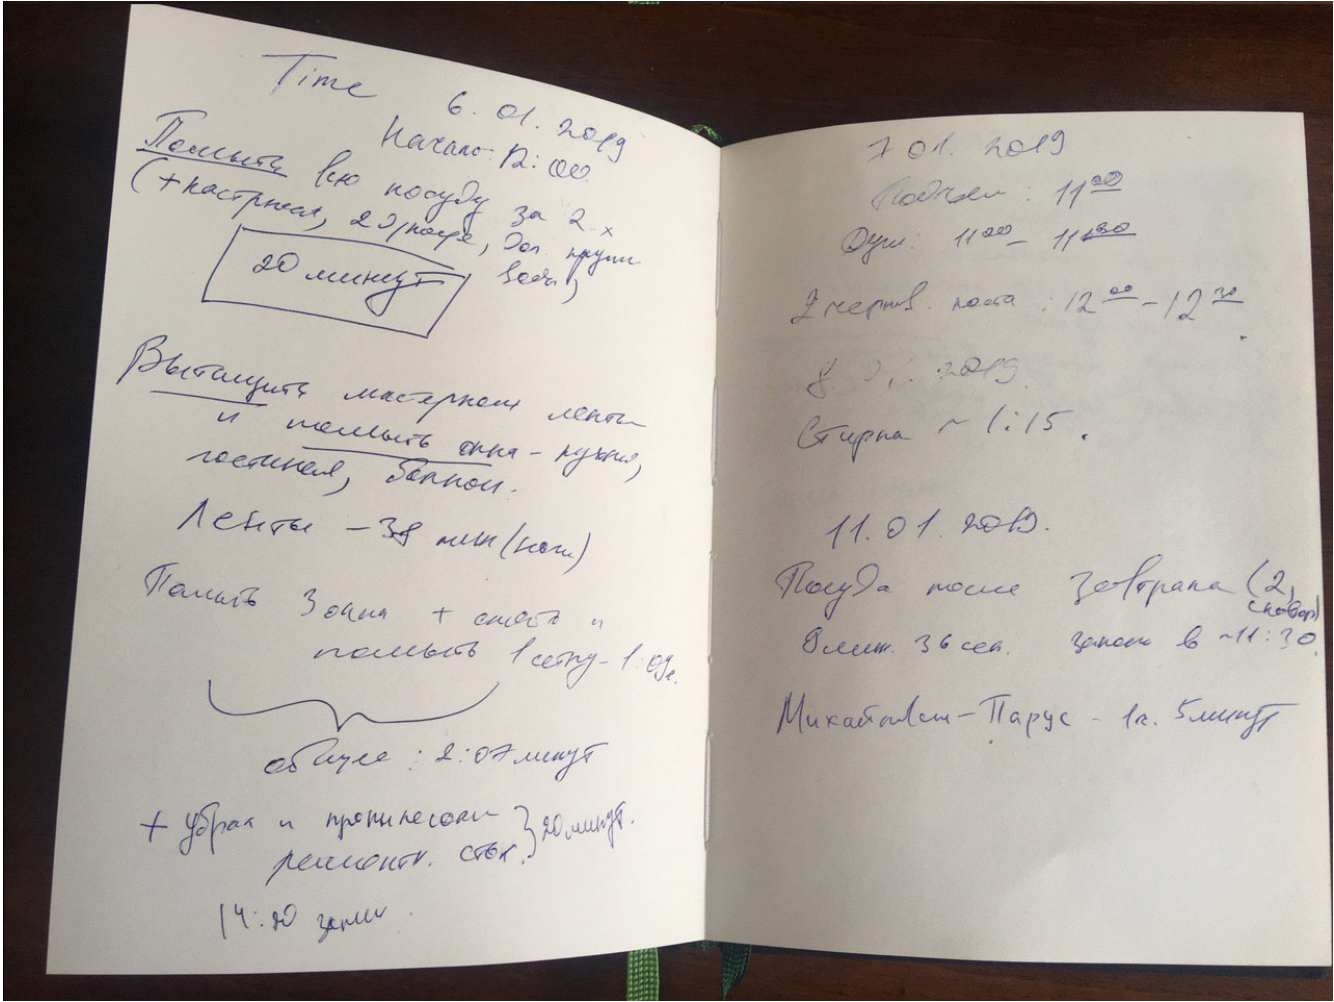 Time
6. 01. 2019
Начало: 12:00
Помыть всю посуду за 2-х
(+ кастрюля,
20 минут
Вытащить ленты
и помыть окна - кухня,
гостиная, ванной.
Ленты - 38 мин
Помыть 3 окна + и
помыть 1 сетку - 1:09
общее : 2:07 минут
+ убрал и пропылесосил } 20 минут.
14:20
7 01. 2019
Подъем : 11 00
Душ: 11 00 - 11 30
2 чернов. поста : 12 00 - 12 30
8. 01. 2019.
Стирка ~ 1:15.
11.01.2019.
Посуда после завтрака (2,
сковор)
мин. 36 сек. в ~11:30.
Парус - 1ч. 5 минут